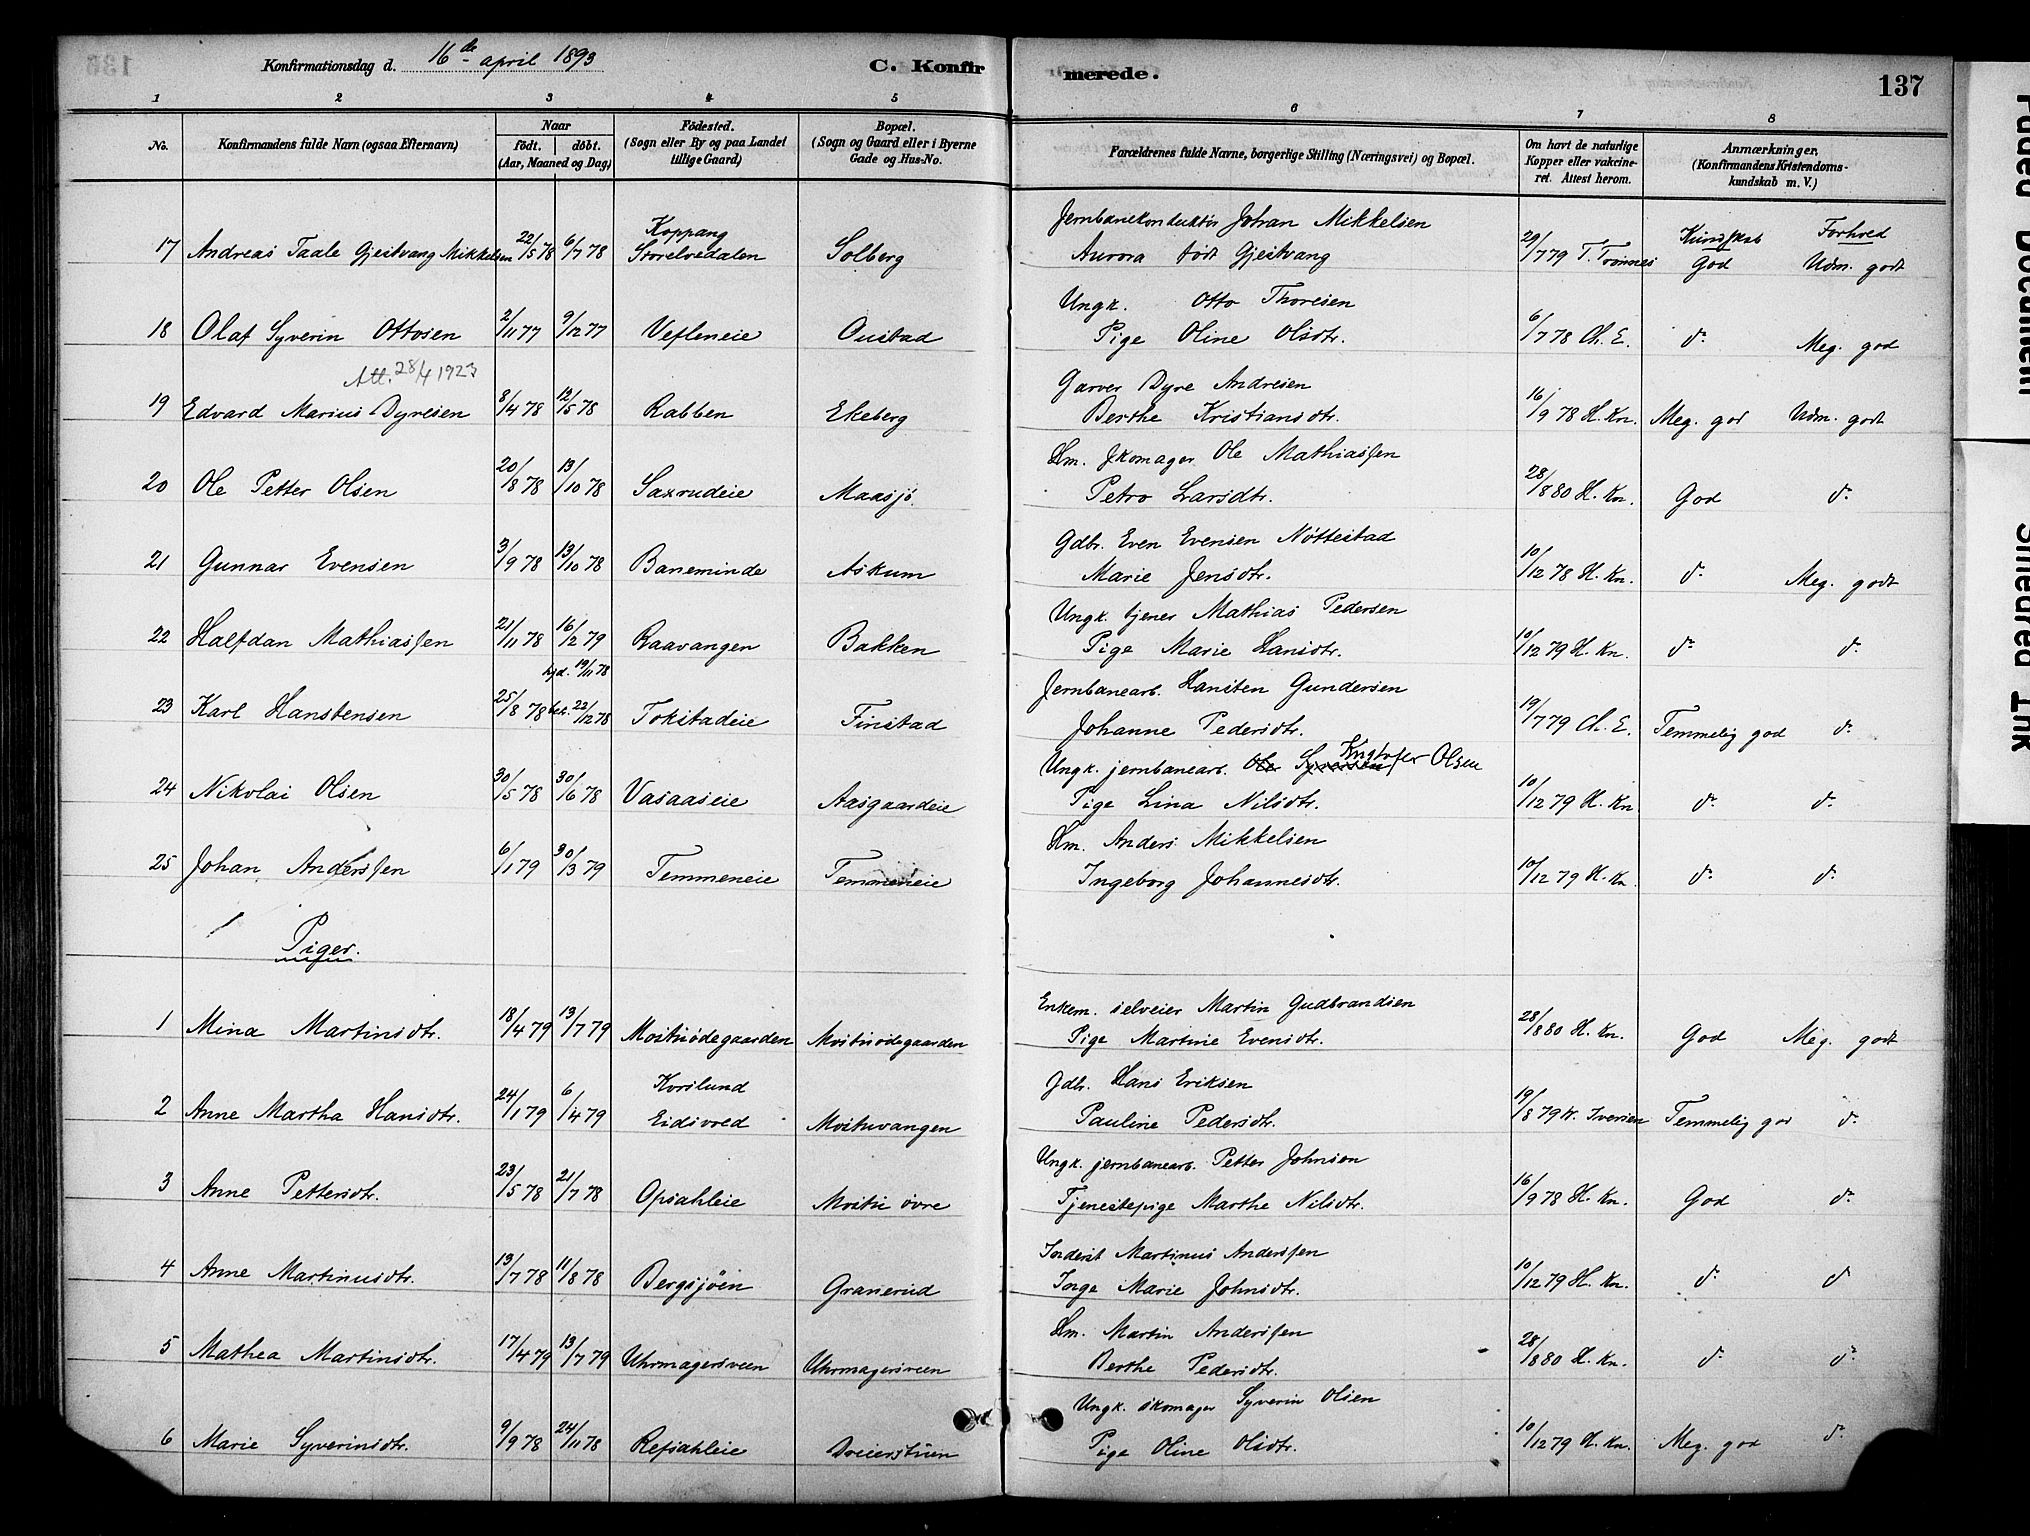 Konfirmationsdag d. 16de april 1893
C. Konfirmerede.
137
1 2 3 4 5 6 7 8
No.
Konfirmandens fulde Navn (ogsaa Efternavn)
Naar født. døbt. (Aar, Maaned og Dag)
Fødested. (Sogn eller By og paa Landet tillige Gaard)
Bopæl. (Sogn og Gaard eller i Byerne Gade og Hus-No.
Forældrenes fulde Navne, borgerlige Stilling (Næringsvei) og Bopæl.
Om havt de naturlige Kopper eller vakcineret. Attest herom.
Anmærkninger, (Konfirmandens Kristendomskundskab m. V.)
Kundskab Forhold
17 Andreas Taale Gjestvang Mikkelsen 22/5 78 6/7 78 Koppang Storelvedalen Solberg Jernbanekonduktør Johan Mikkelsen
Aurora født Gjestvang 29/7 79 T. Trønnes God Udm. godt
18 Olaf Syverin Ottosen 2/11 77 9/12 77 Vefleneie Oustad Ungk. Otto Thoresen
Pige Oline Olsdtr. 6/7 78 Ch. E. do Meg. god
Att. 28/4 1923
19 Edvard Marius Dyresen 8/4 78 12/5 78 Rabben Ekeberg Garver Dyre Andresen
Berthe Kristiansdtr. 16/9 78 H. Kn. Meg. god Udm. godt
20 Ole Petter Olsen 20/8 78 13/10 78 Saxrudeie Maasjø. Hm. skomager Ole Mathiassen
Petro Larsdtr. 28/8 80 H. Kn. God do
21 Gunnar Evensen 3/9 78 13/10 78 Baneminde Askum Gdbr. Even Evensen Nøttestad
Marie Jensdtr. 10/12 78 H. Kn. do Meg. godt
22 Halfdan Mathiassen 21/11 78 16/2 79 Raavangen Bakken Ungk. tjener Mathias Pedersen
Pige Marie Hansdtr. 10/12 79 H. Kn. do do
23 Karl Hanstensen 25/8 78 hjd. 19/11 78 bek. 22/12 78 Tokstadeie Finstad Jernbanearb. Hansten Gundersen
Johanne Pedersdtr. 19/7 79 Ch. E. Temmelig god do
24 Nikolai Olsen 30/5 78 30/6 78 Vasaaseie Aasgaardeie Ungk. jernbanearb. Ole Syversen Kristofer Olsen
Pige Lina Nilsdtr. 10/12 79 H. Kn. do do
25 Johan Anderssen 6/1 79 30/3 79 Temmeneie Temmeneie Hm. Anders Mikkelsen
Ingeborg Johannesdtr. 10/12 79 H. Kn. do do
Piger.
1 Mina Martinsdtr. 18/4 79 13/7 79 Mostuødegaarden Mostuødegaarden Enkem. selveier Martin Gudbrandsen
Pige Martine Evensdtr. 28/8 80 H. Kn. God Meg. godt
2 Anne Martha Hansdtr. 24/1 79 6/4 79 Korslund Eidsvold Mostuvangen Gdb. Hans Eriksen
Pauline Pedersdtr. 19/8 79 K. Iversen Temmelig god do
3 Anne Pettersdtr. 23/5 78 21/7 78 Opsahleie Mostu øvre Ungk. jernbanearb. Petter Johnsen
Tjenestepige Marthe Nilsdtr. 16/9 78 H. Kn. God do
4 Anne Martinusdtr. 13/7 78 11/8 78 Bergsjøen Granerud Inderst Martinus Anderssen
Inge Marie Johnsdtr. 10/12 79 H. Kn. do do
5 Mathea Martinsdtr. 17/4 79 13/7 79 Uhrmagersveen Uhrmagersveen Hm. Martin Anderssen
Berthe Pedersdtr. 28/8 80 H. Kn. do do
6 Marie Syverinsdtr. 9/9 78 24/11 78 Refsahleie Dreierstuen Ungk. skomager Syverin Olsen
Pige Oline Olsdtr. 10/12 79 H. Kn. Meg. god do
Faded Document
Smeared Ink